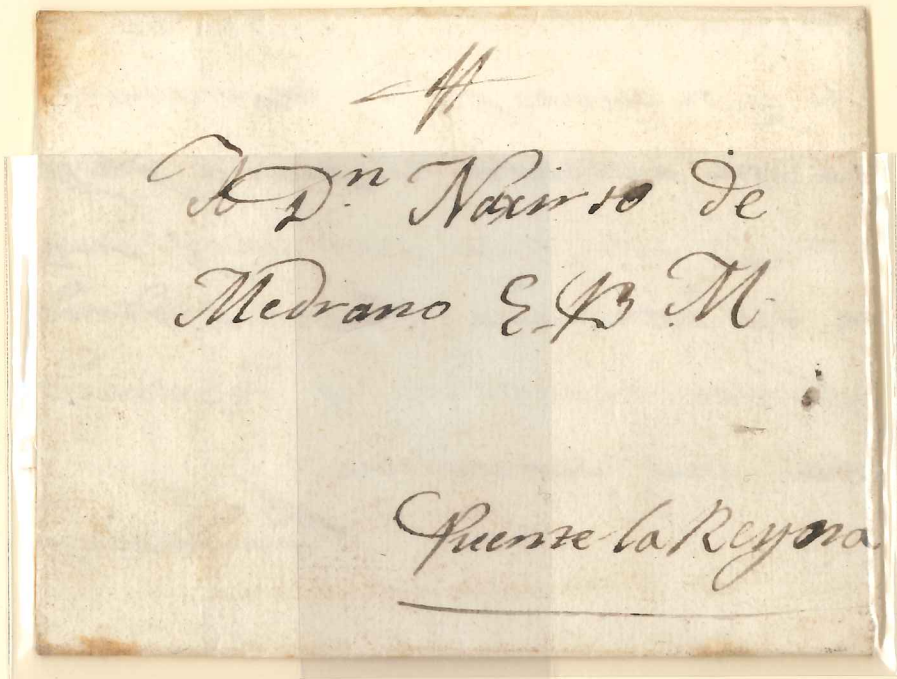 A Dn Narciso de
Medrano E. B M
Puente la Reyna